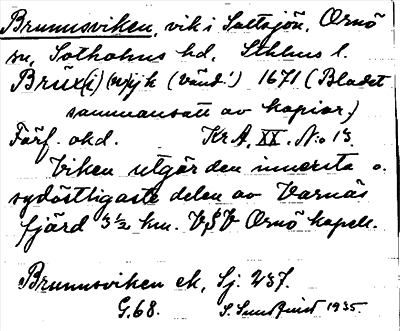 Brunnsviken, vik i Saltsjön, Ornö
sn, Sotholms hd, Sthlms l.
Brüx(i) (w)ijk (vänd!) 1671 (Bladet
sammansatt av kopior.)
Förf. okd. Kr.A. XX. No 13.
Viken utgör den innersta o.
sydöstligaste delen av Varnäs
fjärd 3½ km. VSV Ornö kapell.
Brunnsviken ek, Sj. 237.
G.68. S. Sundquist 1935.